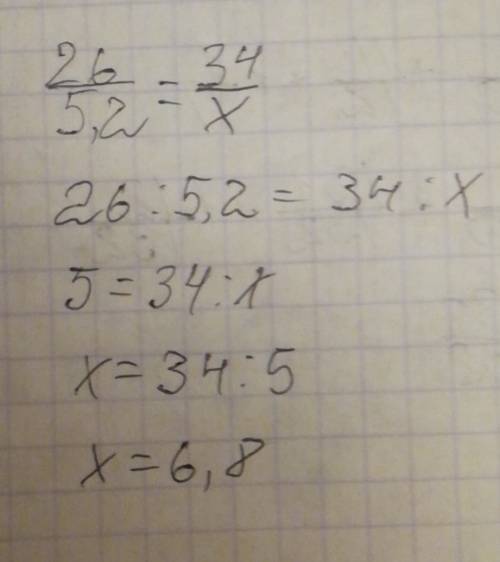 26/5,2 = 34/x
26 : 5,2 = 34 : x
5 = 34 : x
x = 34 : 5
x = 6,8